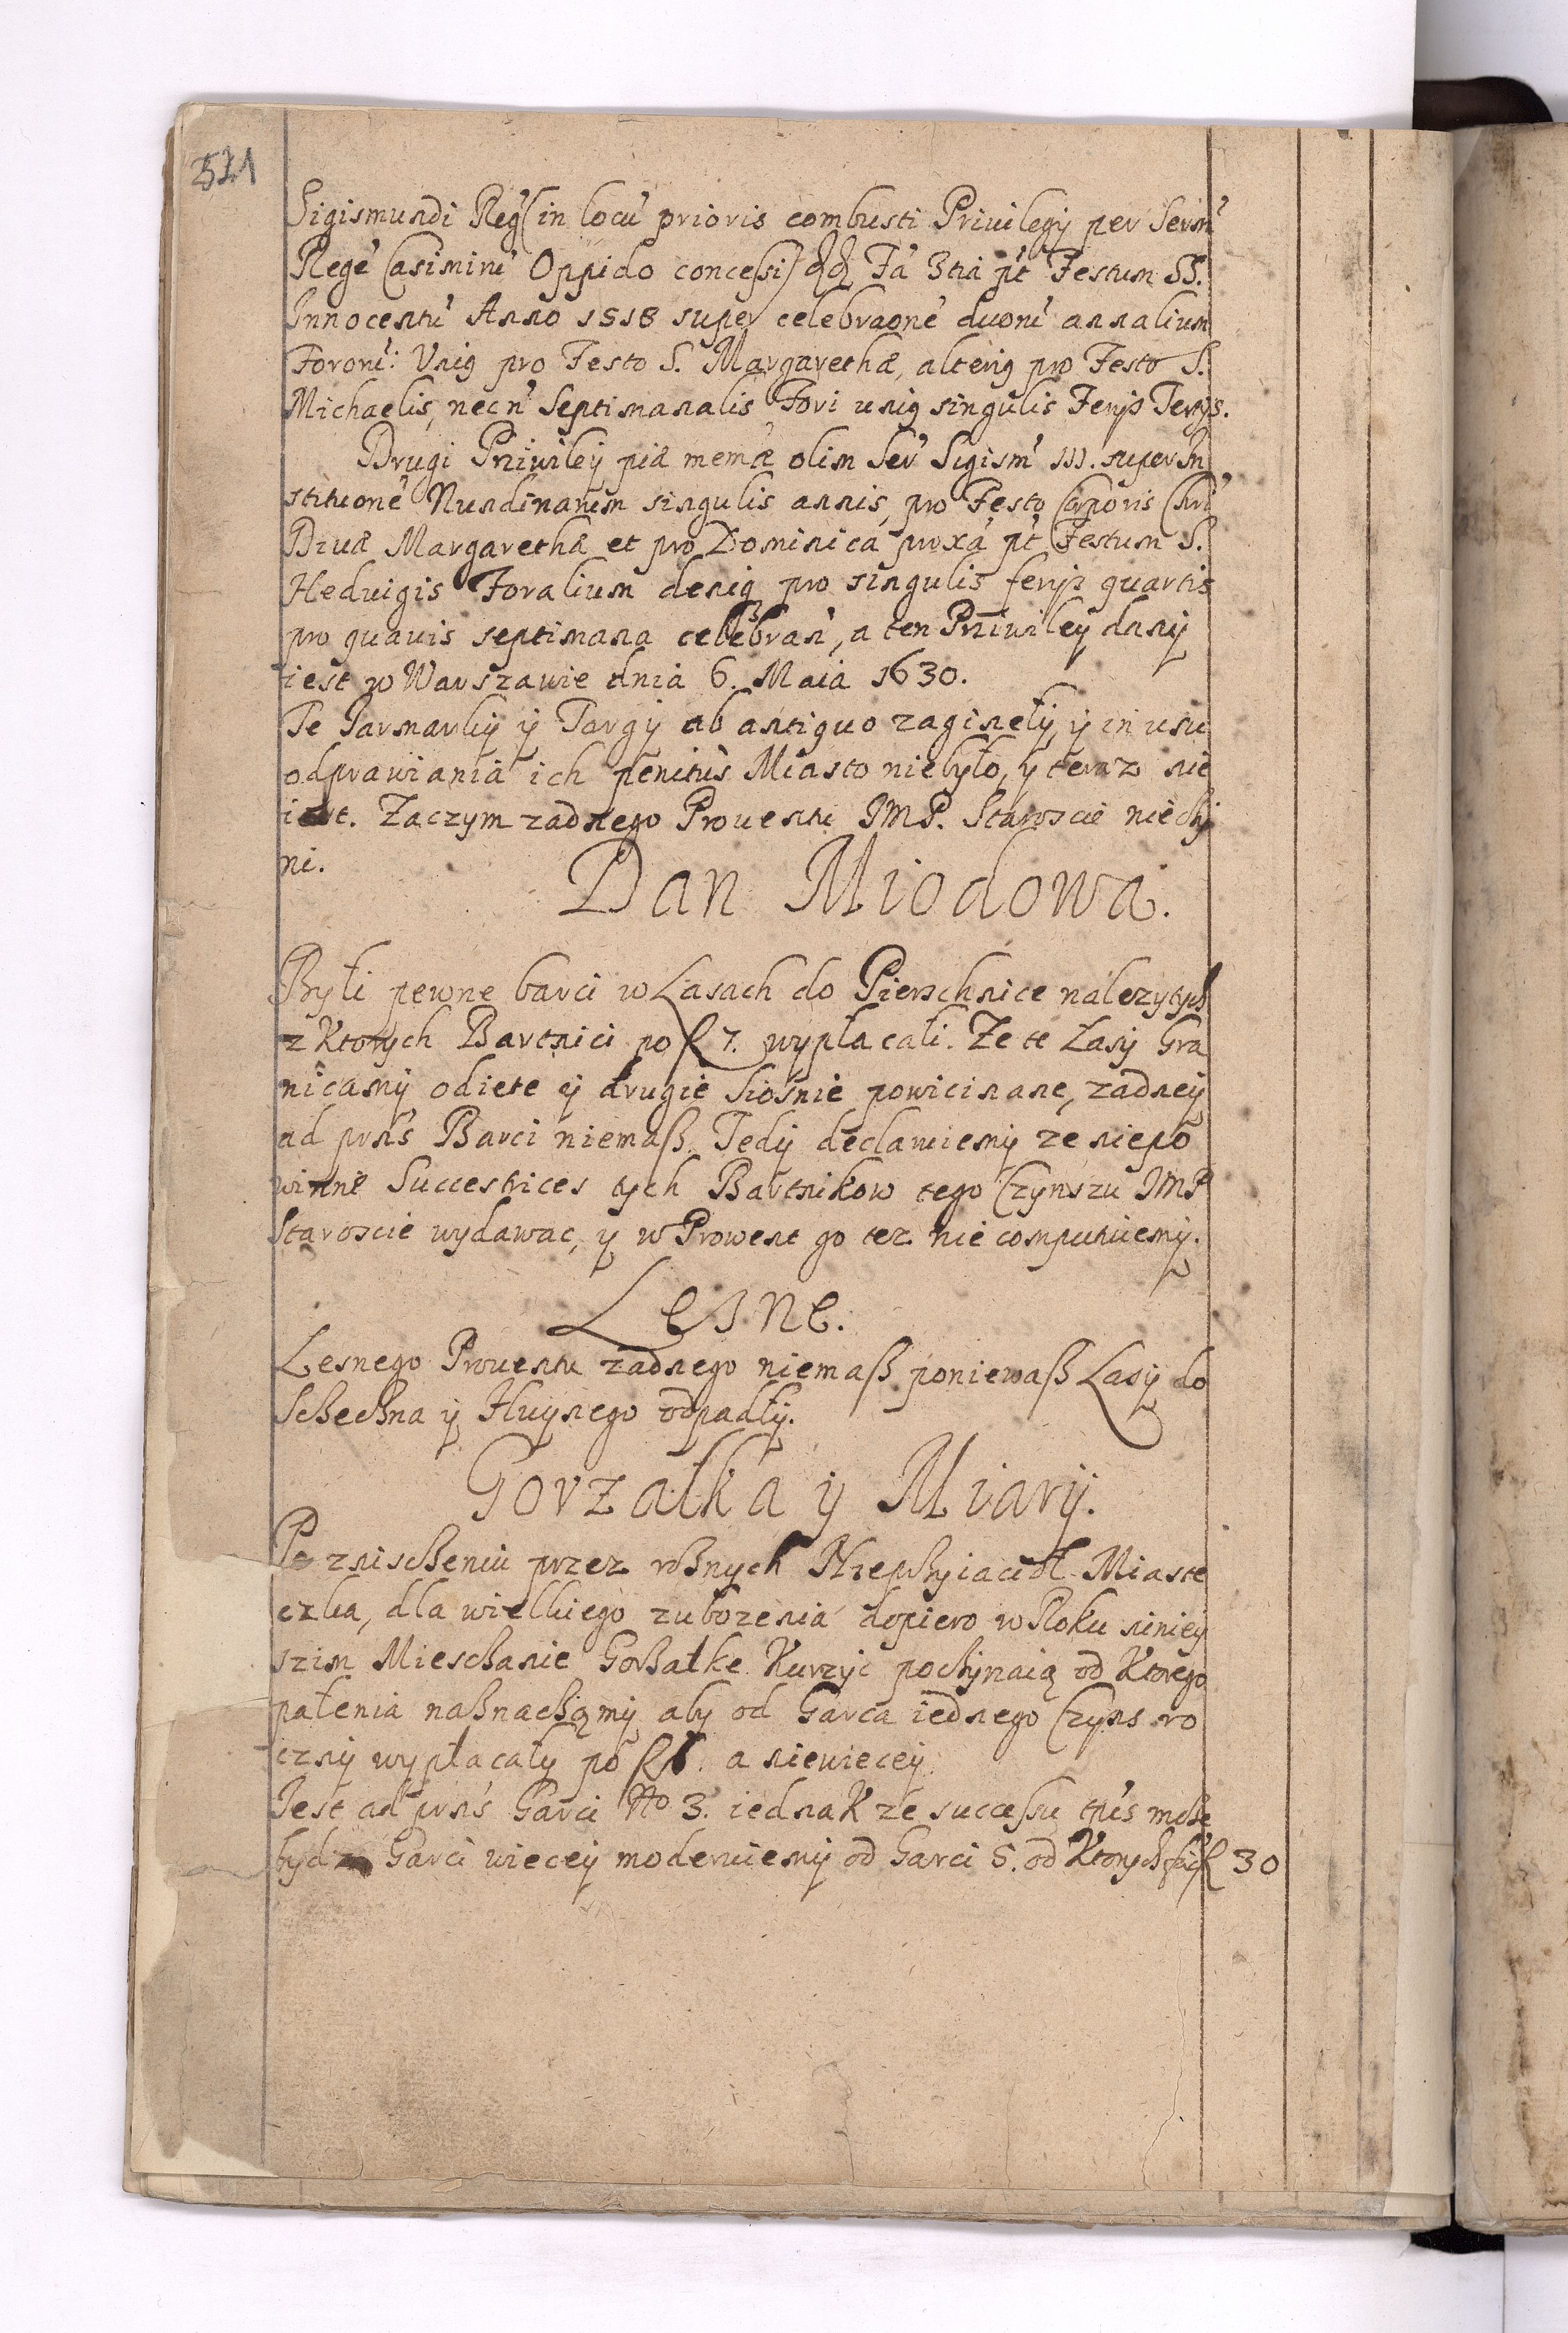 521
Sigismundi Reg (in locu' prioris combusti Privilegij per Serm'
Rege' Casimiru' Oppido concessi) Fa' 3tia p't Festum SS.
Innocentu' Anno 1518 super celebraone' duoru' annalium
Fororu': Unig pro Festo S. Margarethæ, alterig pro Festo S.
Michaelis, necn' Septimanalis Fori unig singulis Ferijs Tertijs.
Drugi Priwiley piæ memæ olim Ser' Sigism' III. super In
stituone' Nundinarum singulis annis, pro Festo Corporis Chri'
Divæ Margarethæ et pro Dominica proxa' p't Festum S.
Hedvigis Foralium deniq pro singulis ferijs quartis
pro quavis septimana celebran', a ten Priwiley dany
iest w Warszawie dnia 6. Maia 1630.
Te Jarmarky ÿ Targÿ ab antiquo zaginęłÿ, ÿ in usu
odprawiania ich penitus Miasto niebyło, y teraz nie
iest. Zaczym zadnego Proventu JMP. Staroscie nieczÿ
ni.
Dan Miodowa.
Byłi pewne barci w Lasach do Pierzchnice nalezytych
z Ktorych Bartnici po f 7. wypłacali. Ze te Lasÿ Gra
nicamÿ odiete ÿ drugie Siośnie powicinane, zadneÿ
ad prns Barci niemaß. Tedÿ declaruiemÿ ze niepo
winne Succestrices tych Bartnikow tego Czynszu JMP
Staroscie wydawac, y w Prowent go tez nie computuiemÿ.
Lesne.
Lesnego Proventu zadnego niemaß poniewaß Lasÿ do
Schechna ÿ Huysnego odpadłÿ.
Gorzałka ÿ Miarÿ.
Po znischeniu przez roßnych Nieprzyiacioł Miaste
czka, dla wielkiego zubozenia dopiero w Roku niniey
szim Mieschanie Gorzałke Kurzyć poczÿnaią od Ktorego
palenia naßnaczamÿ aby od Garca iednego Czyns ro
cznÿ wypłacałÿ po f 6. a niewiecey.
Jest ad prns Garci No 3. iednak ze successu tp'is może
bydz Garci wiecey moderuiemÿ od Garci 5. od Ktorych f 30